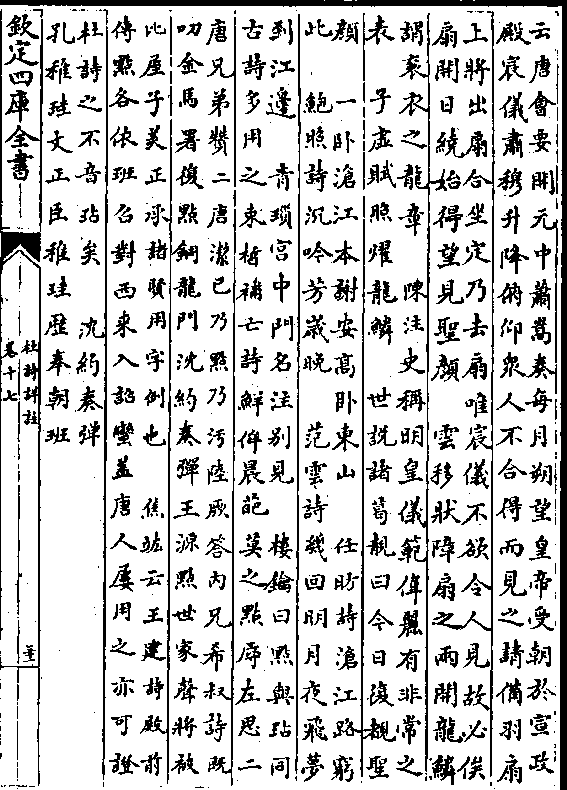 云唐會要開元中蕭嵩奏每月朔望皇帝受朝於宣政
殿宸儀肅穆升降俯仰衆人不合得而見之請備羽扇
上將出扇合坐定乃去扇唯宸儀不欲令人見故必俟
扇開日繞始得望見聖顔　雲移狀障扇之兩開龍鱗
謂衮衣之龍章　陳注史稱明皇儀範偉麗有非常之
表　子虛賦照耀龍鱗　世説諸葛靚曰今日復覩聖
顔　一卧滄江本謝安髙卧東山　任昉詩滄江路窮
此　鮑照詩沉吟芳嵗晚　范雲詩幾回明月夜飛夢
到江邊　青瑣宫中門名注别見　樓鑰曰點與玷同
古詩多用之束晳補亡詩鮮侔晨葩莫之點辱左思二
唐兄弟贊二唐潔已乃點乃汚陸厥答内兄希叔詩既
叨金馬署復點銅龍門沈約奏彈王源點世家聲將被
比屋子美正承諸賢用字例也　焦竑云王建詩殿前
傳點各依班召對西來入詔蠻蓋唐人屢用之亦可證
杜詩之不音玷矣　沈約奏彈
孔稚珪文正臣稚珪歴奉朝班
欽定四庫全書
杜詩詳註
卷十七